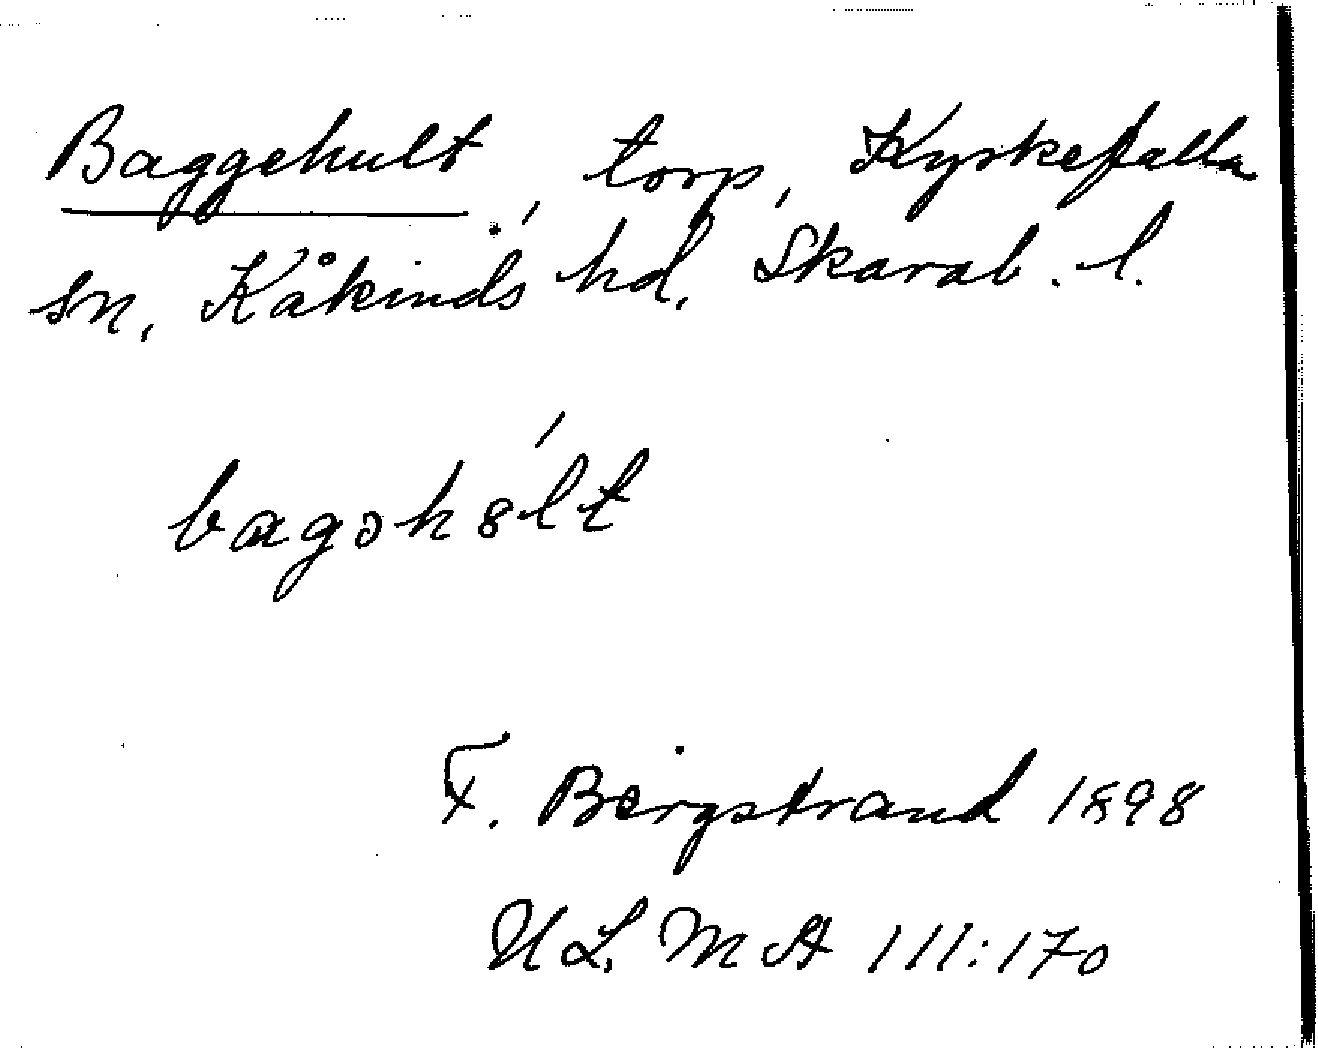 Baggehult, torp, Kyrkefalla
sn, Kåkinds hd, Skarab. l.
bagəh8lt
F. Bergstrand 1898
ULMA 111:170